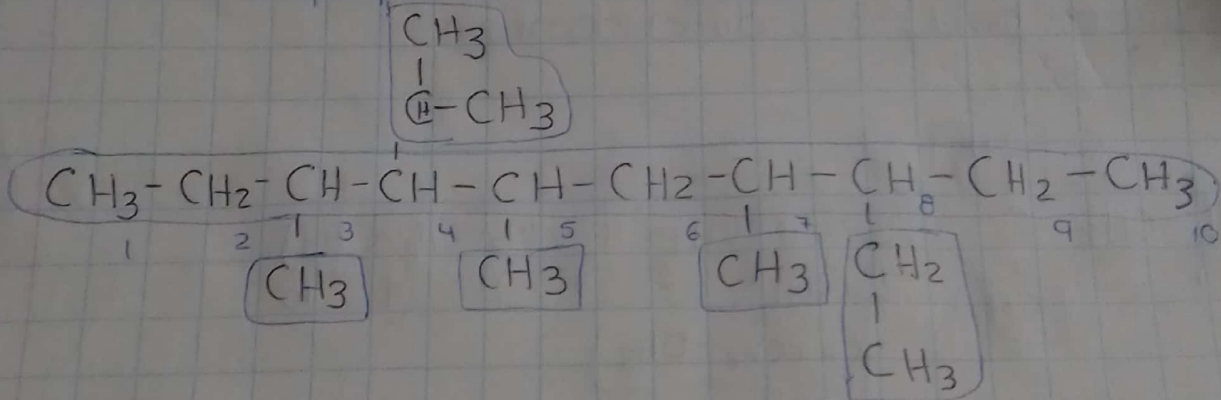 CH3
|
CH-CH3
|
CH3-CH2-CH-CH-CH-CH2-CH-CH-CH2-CH3
1 2 | 3 4 | 5 6 | 7 | 8 9 10
CH3 CH3 CH3 CH2
|
CH3